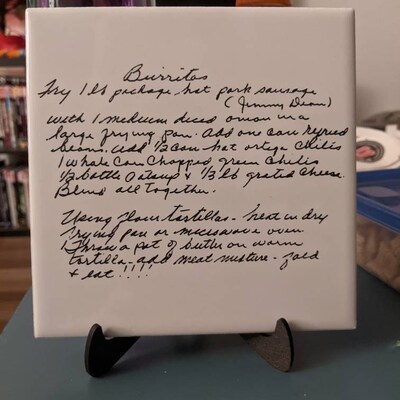 Burritos
Fry 1 lb package hot pork sausage
(Jimmy Dean)
with 1 medium diced onion in a
large frying pan. Add one can refried
beans. Add 1/2 can hot ortega chilis
1 whole can chopped green chilis
1/2 bottle & 1/3 lb grated cheese.
Blend all together.
Using flour tortillas - heat in dry
frying pan or microwave oven
Throw a pat of butter on warm
tortilla - add meat mixture - fold
& eat!!!!